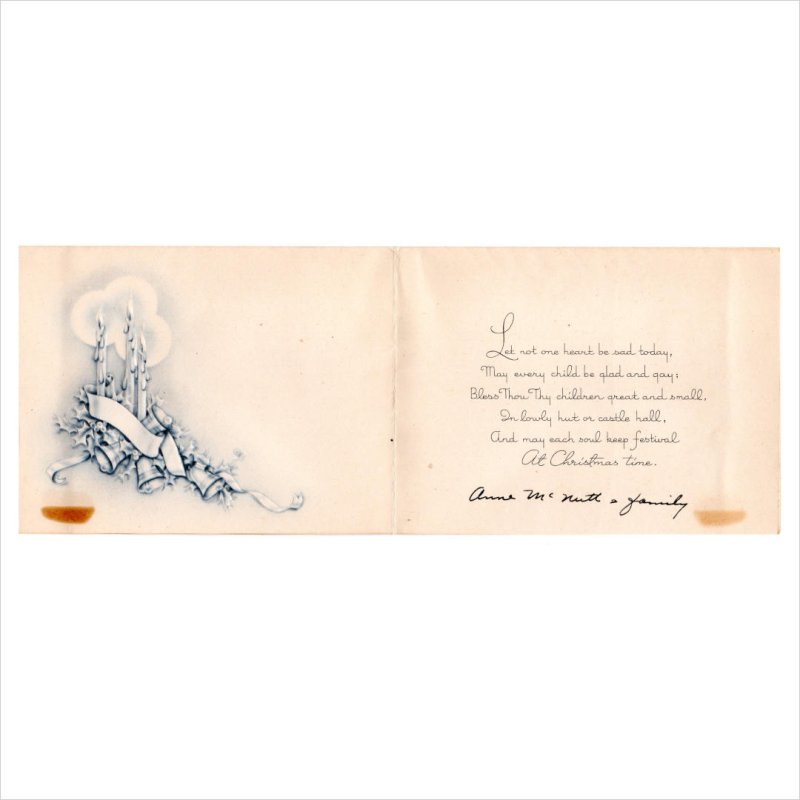 Let not one heart be sad today,
May every child be glad and gay;
Bless Thou Thy children great and small,
In lowly hut or castle hall,
And may each soul keep festival
At Christmas time.
Anne McNutt & family